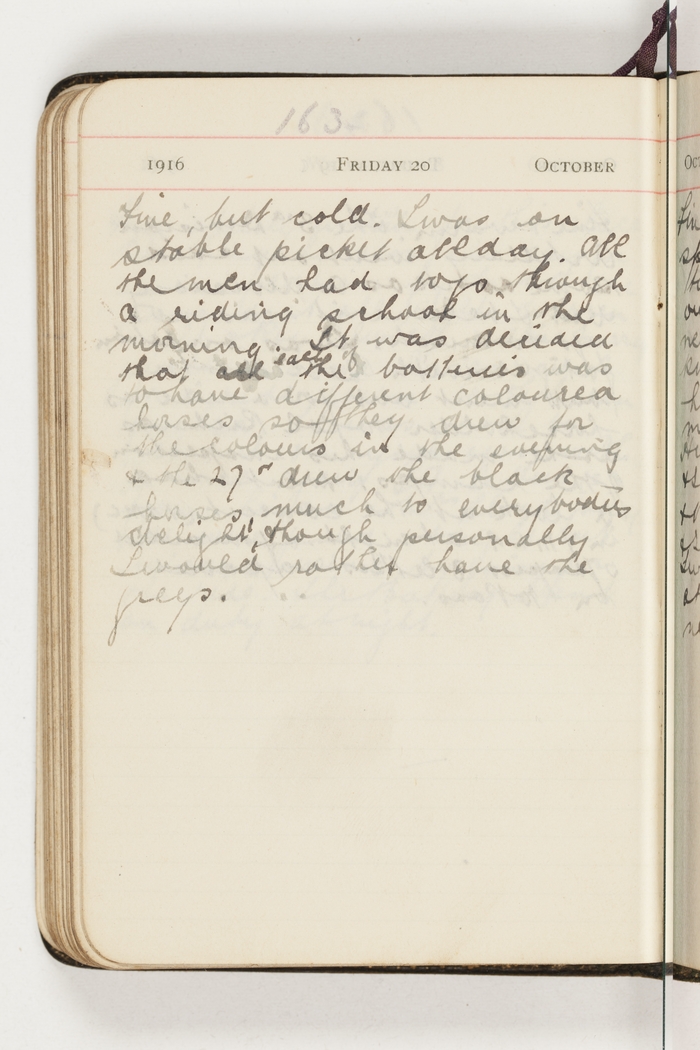 163
1916 FRIDAY 20 OCTOBER
Fine, but cold. I was on
stable picket all day. All
the men had to go through
a riding school in the
morning. It was decided
that all each of the batteries was
to have different coloured
horses so they drew for
the colours in the evening
& the 27th drew the black
horses much to everybodies
delight, though personally
I would rather have the
greys.